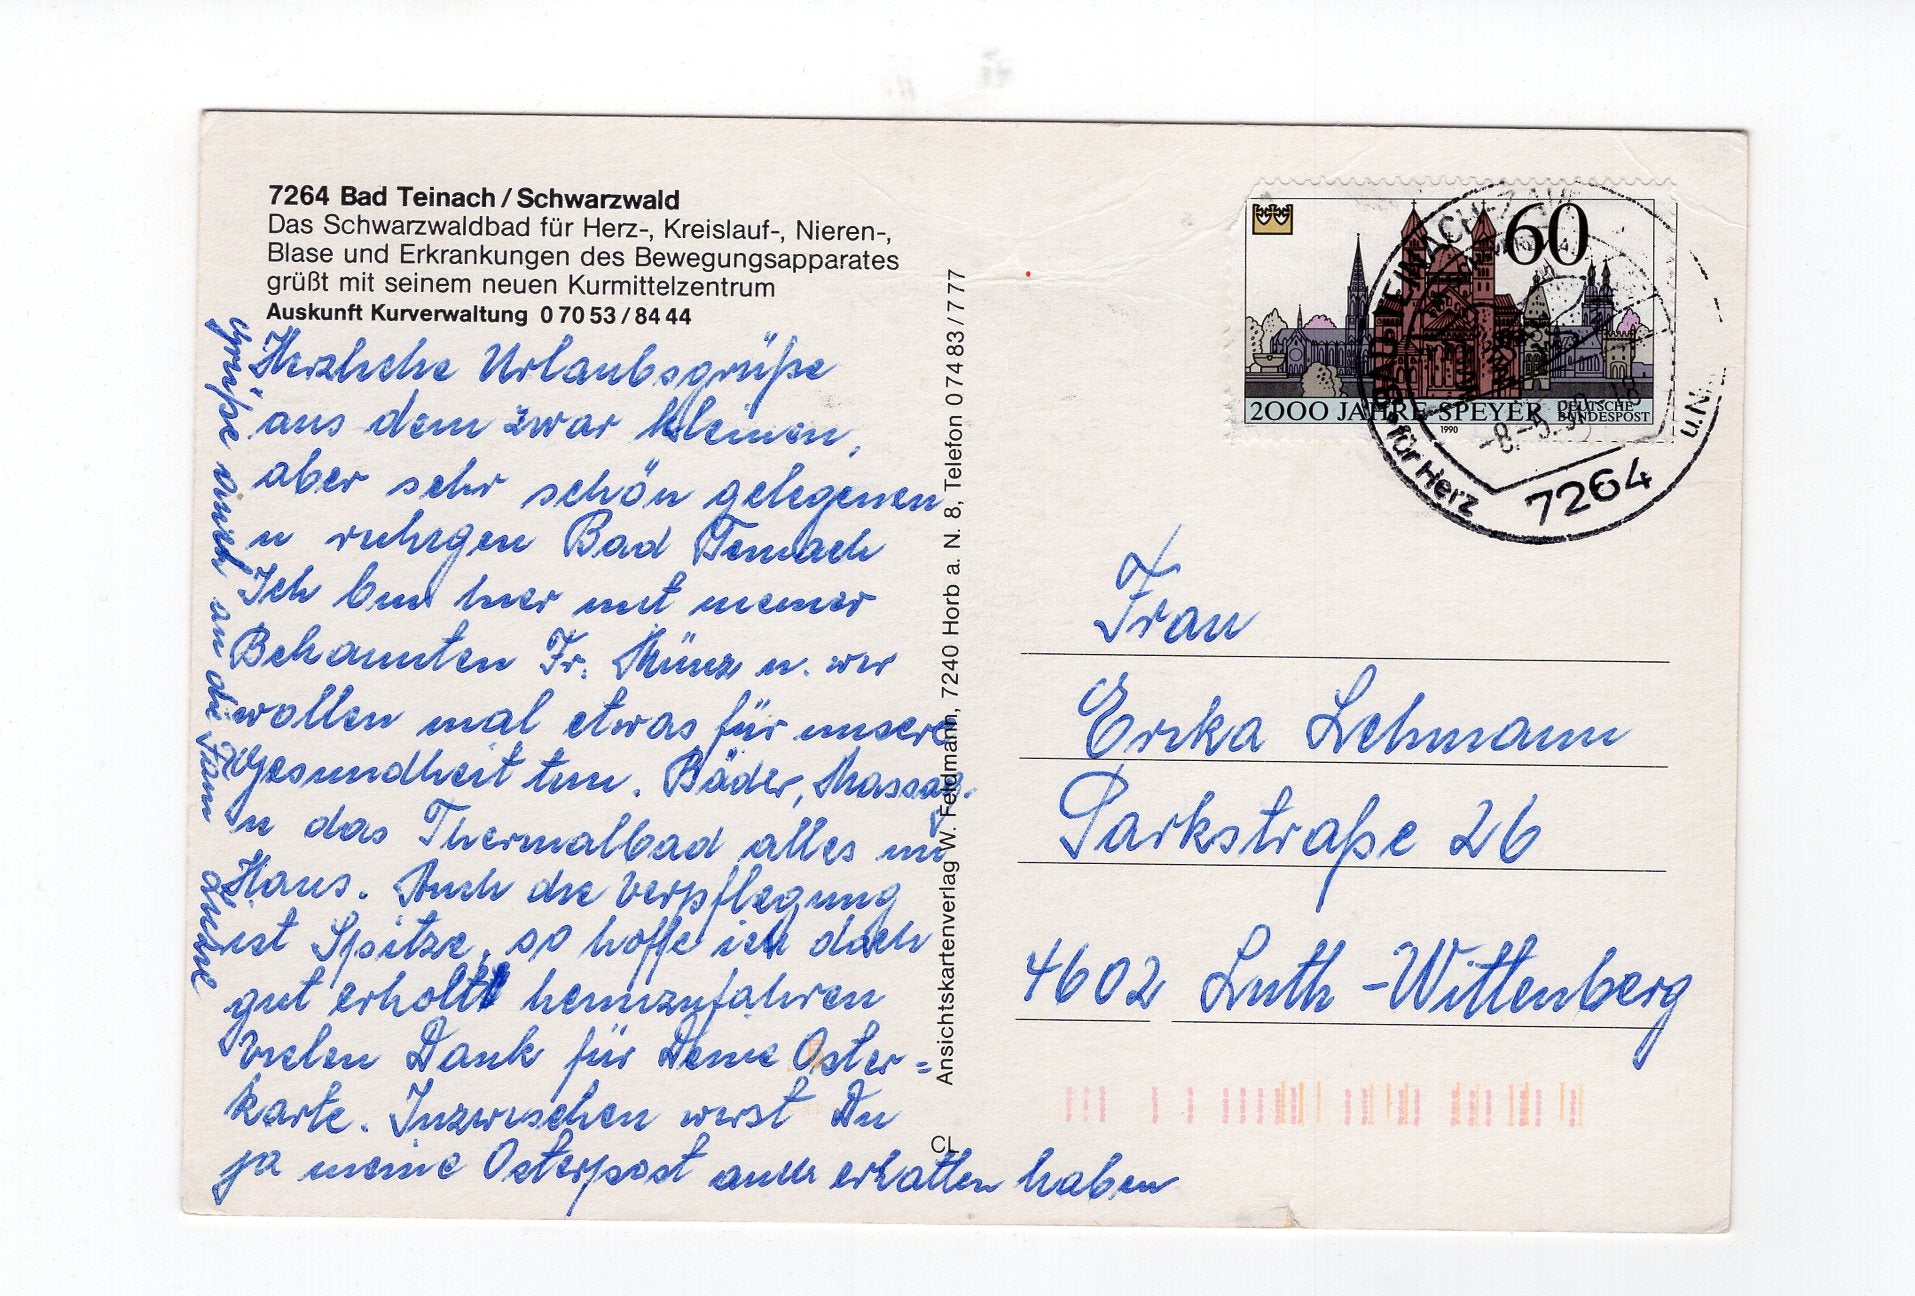 7264 Bad Teinach/Schwarzwald
Das Schwarzwaldbad für Herz-, Kreislauf-, Nieren-,
Blase und Erkrankungen des Bewegungsapparates
grüßt mit seinem neuen Kurmittelzentrum
Auskunft Kurverwaltung 0 70 53 / 84 44
Herzliche Urlaubsgrüße
aus dem zwar kleinen,
aber sehr schön gelegenen
u ruhigen Bad Teinach
Ich bin hier mit meiner
Bekannten Fr. Münz u. wir
wollen mal etwas für unsere
Gesundheit tun. Bäder, Massag.
u das Thermalbad alles im
Haus. Auch die Verpflegung
ist Spitze, so hoffe ich doch
gut erholt heimzufahren
Vielen Dank für Deine Oster=
karte. Inzwischen wirst Du
ja meine Osterpost auch erhalten haben
Grüße auch an die Fam
Ansichtskartenverlag W. Feldmann, 7240 Horb a. N. 8, Telefon 0 74 83 / 7 77
CL
60
2000 JAHRE SPEYER
DEUTSCHE
BUNDESPOST
1990
für Herz
u.N
7264
Frau
Erika Lehmann
Parkstraße 26
4602 Luth-Wittenberg